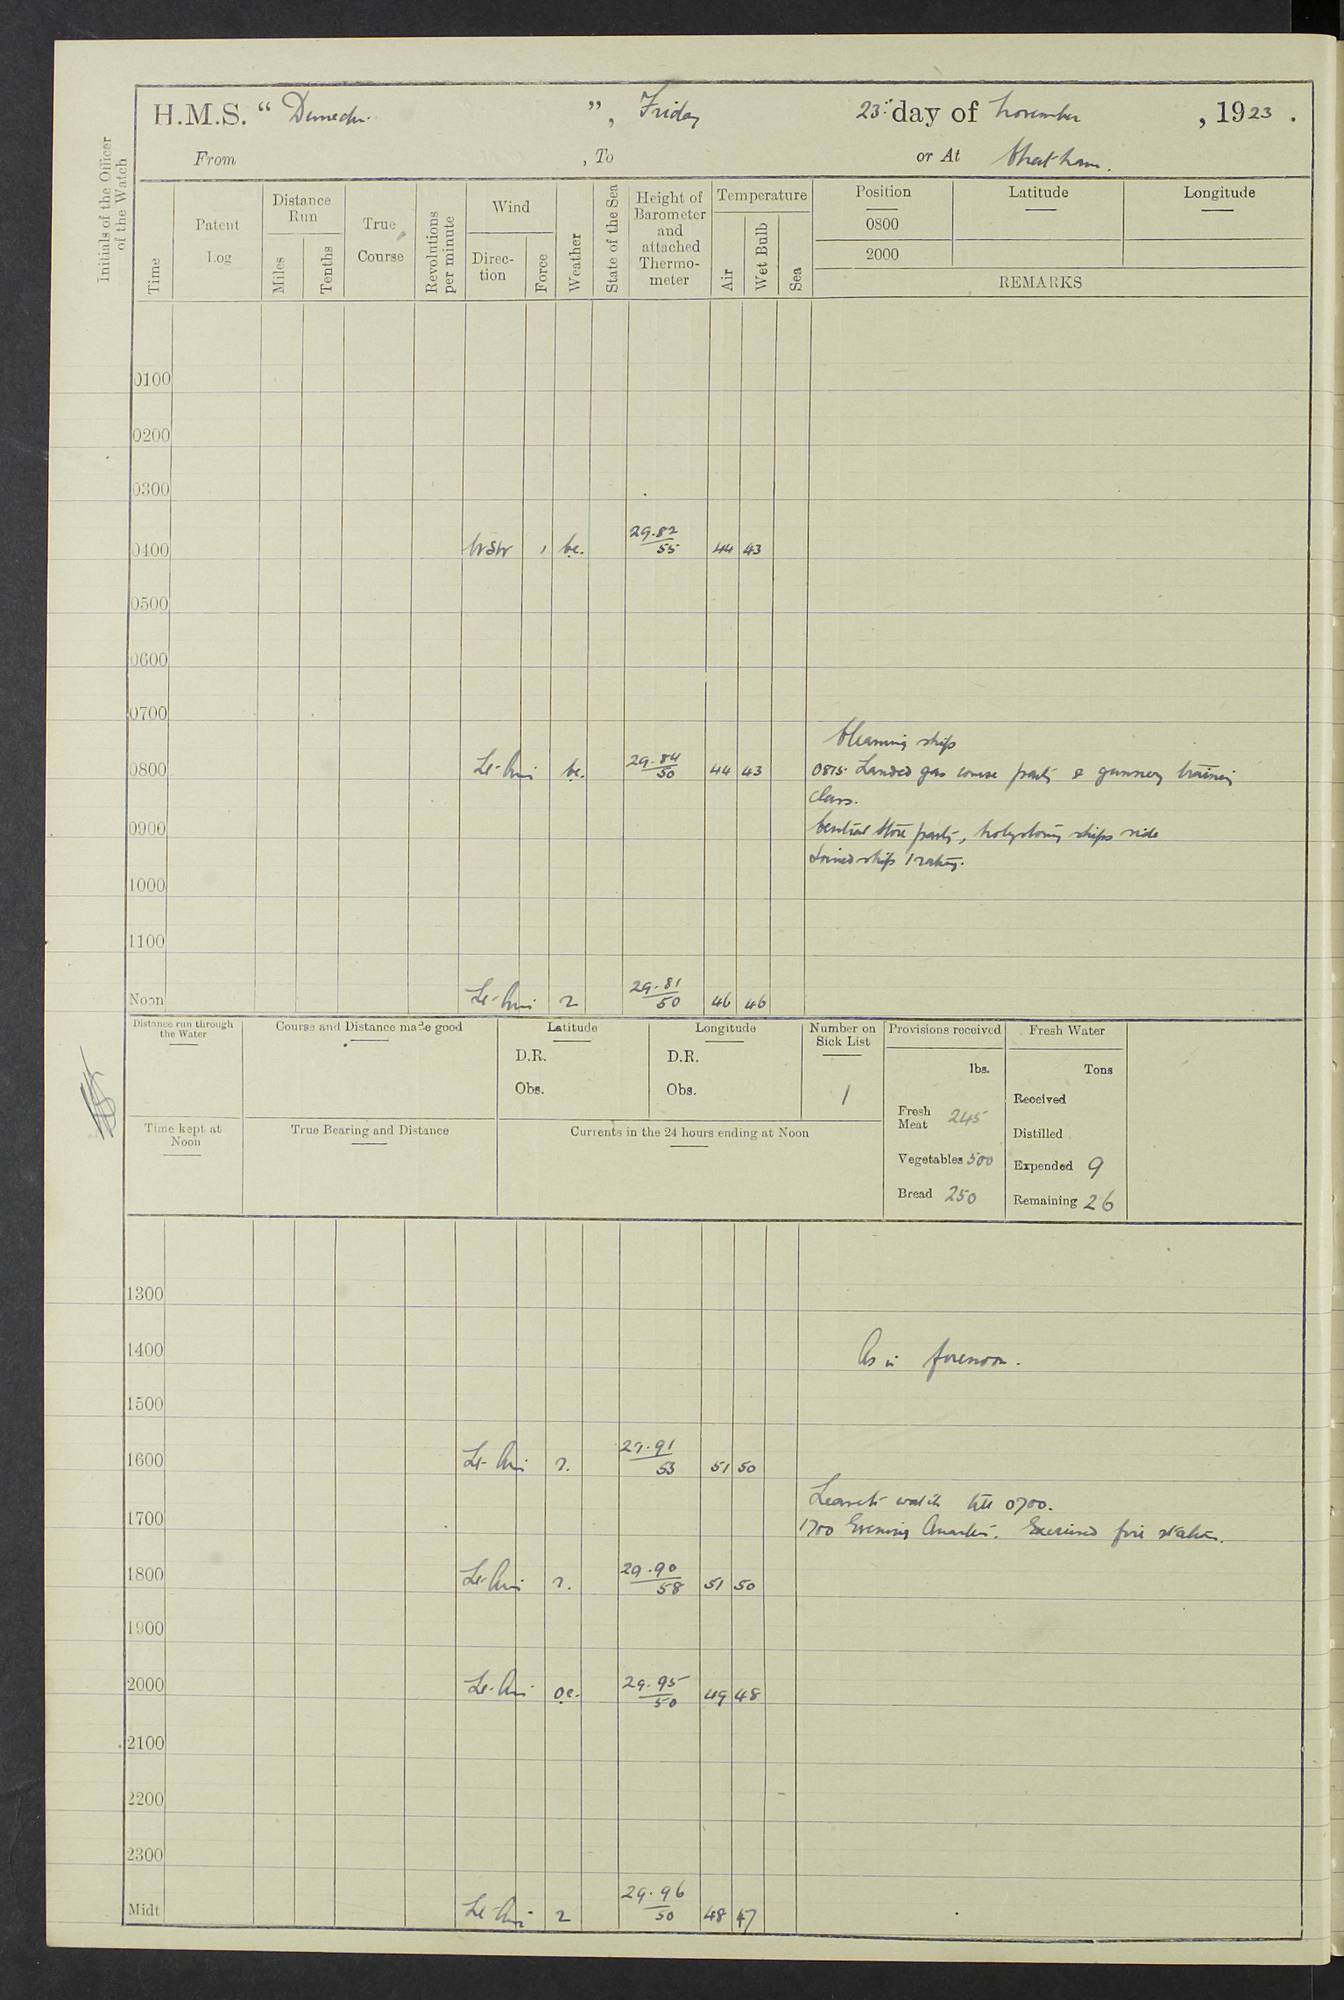 H.M.S. " ", Friday 23rd day of November, 1923.
From , To or At Chatham.
Initials of the Officer of the Watch
Time
Patent Log
Distance Run
Miles
Tenths
True Course
Revolutions per minute
Wind
Direction
Force
Weather
State of the Sea
Height of Barometer and attached Thermometer
Temperature
Air
Wet Bulb
Sea
Position Latitude Longitude
0800
2000
REMARKS
0100
0200
0300
0400 WSW 1 bc. 29.82 55 44 43
0500
0600
0700
Cleaning ship
0800 Lt-Airs bc. 29.84 50 44 43 0815 Landed gas course party & gunnery training
class.
0900 Central Store party, holystoning ships side
Joined ship 1 rating.
1000
1100
Noon Lt-Airs r 29.81 50 46 46
Distance run through the Water
Course and Distance made good
Latitude
D.R.
Obs.
Longitude
D.R.
Obs.
Number on Sick List
1
Provisions received
lbs.
Fresh Meat 245
Vegetables 500
Bread 250
Fresh Water
Tons
Received
Distilled
Expended 9
Remaining 26
Time kept at Noon
True Bearing and Distance
Currents in the 24 hours ending at Noon
1300
1400 As in forenoon.
1500
1600 Lt-Airs r. 29.91 53 51 50
Leave to watch till 0700.
1700 1700 Evening Quarters. Exercised fire stations.
1800 Lt-Airs r. 29.90 58 51 50
1900
2000 Lt-Airs oc. 29.95 50 49 48
2100
2200
2300
Midt Lt-Airs r 29.96 50 48 47